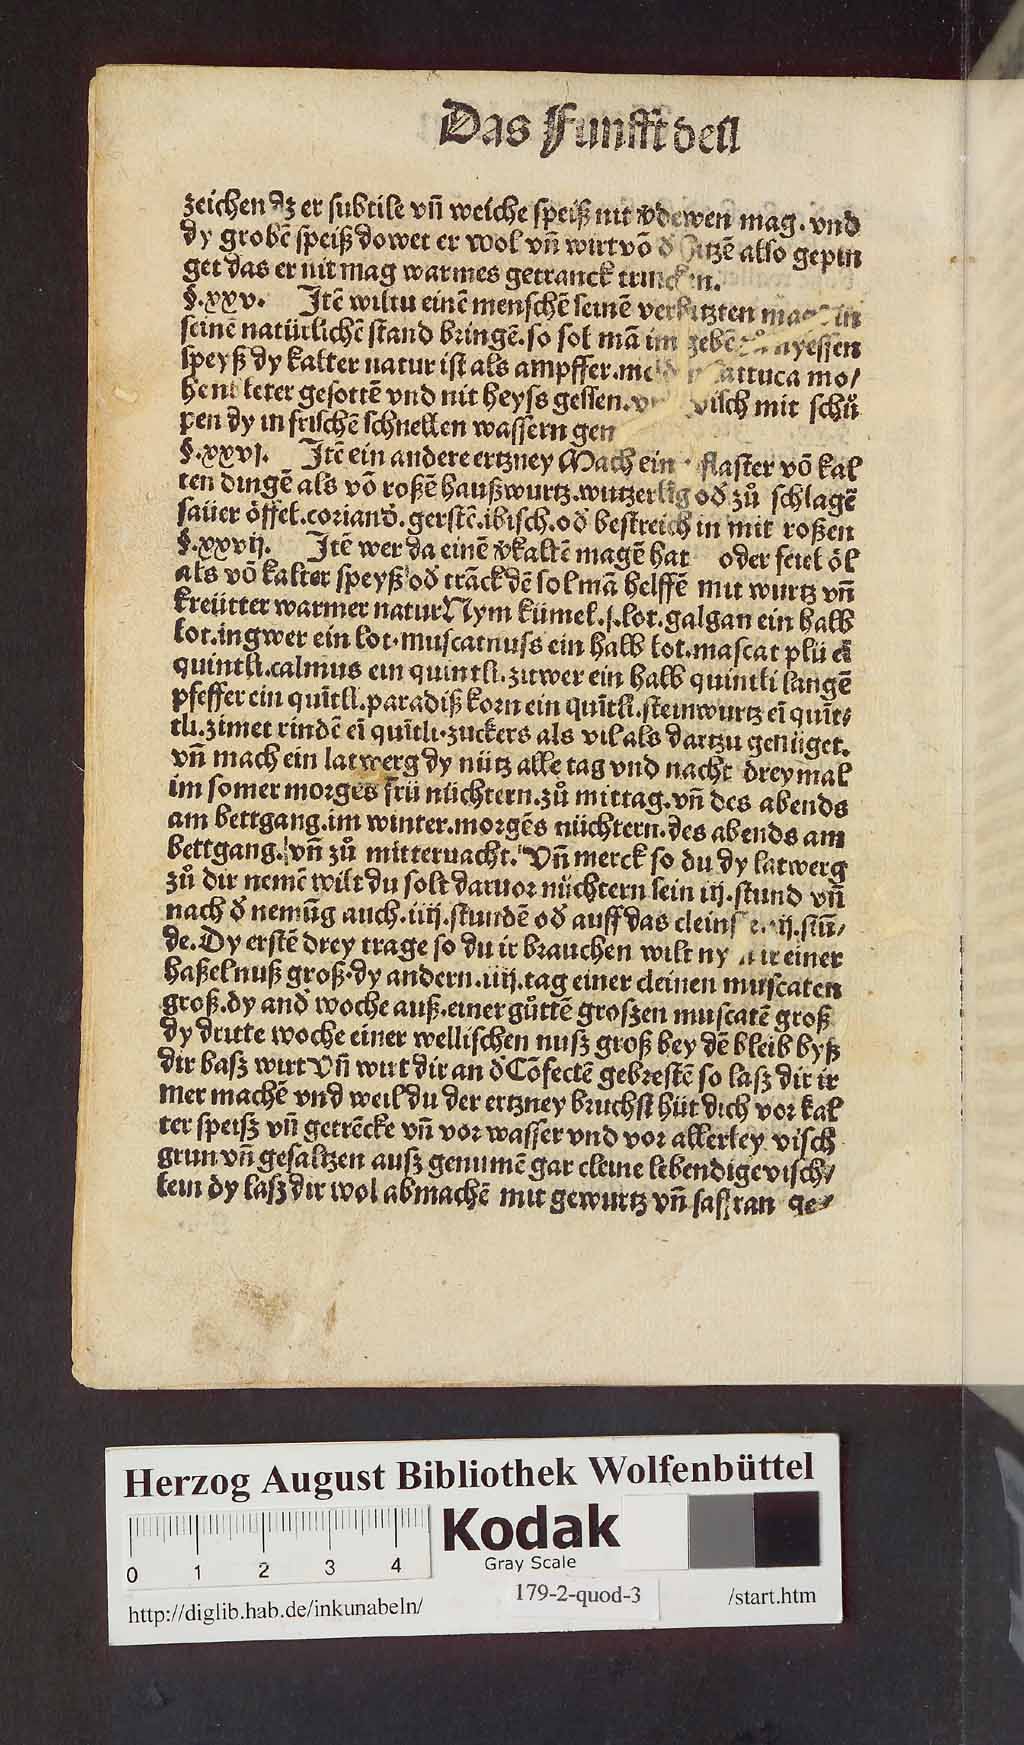 Das Funfft deil
zeichen dz er subtile vñ weiche speiß nit v̄dewen mag. vnd
dy grobē speiß dowet er wol vñ wirt vō đ also gepin
get das er nit mag warmes getranck trincken.
§.xxv. Itē wiltu einē menschē seinē verhitzten in
seinē natürlichē stand bringē. so sol mā im gebē zů essen
speyß dy kalter natur ist als ampffer. lattuca mo/
hen bleter gesottē vnd nit heyss gessen. visch mit schü
pen dy in frischē schnellen wassern gen
§.xxvj. Itē ein andere ertzney Mach ein pflaster vō kal
ten dingē als vō roßē haußwurtz. wutzerlig od̄ zů schlagē
saüer öffel. coriand̄. gerstē. ibisch. od̄ bestreich in mit roßen
§.xxvij. Itē wer da einē v̄kaltē magē hat oder feiel öl
als vō kalter speyß od̄ trāck dē sol mā helffē mit wurtz vñ
kreütter warmer natur Nym kümel .j. lot. galgan ein halb
lot. ingwer ein lot. muscatnuss ein halb lot. mascat plü eī
quintli. calmus ein quintli. zitwer ein halb quintli langē
pfeffer ein quītli. paradiß korn ein quītli. steinwurtz eī quīt/
tli. zimet rindē eī quītli. zuckers als vil als dartzu genüget.
vñ mach ein latwerg dy nütz alle tag vnd nacht dreymal
im somer morges frü nüchtern. zů mittag. vñ des abends
am bettgang. im winter. morgēs nüchtern. des abends am
bettgang. vñ zů mitternacht. Vñ merck so du dy latwerg
zů dir nemē wilt du solt daruor nüchtern sein iij. stund vñ
nach đ nemūg auch .iiij. stundē od̄ auff das cleinst stū/
de. Dy erstē drey trage so du ir brauchen wilt ir einer
haßelnuß groß. dy andern .iiij. tag einer cleinen muscaten
groß. dy and̄ woche auß. einer gůttē groszen muscatē groß
dy dritte woche einer wellischen nusz groß bey dē bleib byß
dir basz wirt Vñ wirt dir an đ Cōfectē gebrestē so lasz dir ir
mer machē vnd weil du der ertzney bruchst hüt dich vor kal
ter speisz vñ getrēcke vñ vor wasser vnd vor allerley visch
grun vñ gesaltzen ausz genumē gar cleine lebendige visch/
lein dy lasz dir wol abmachē mit gewurtz vñ saffran ge/
Herzog August Bibliothek Wolfenbüttel
0 1 2 3 4
Kodak
Gray Scale
http://diglib.hab.de/inkunabeln/ 179-2-quod-3 /start.htm